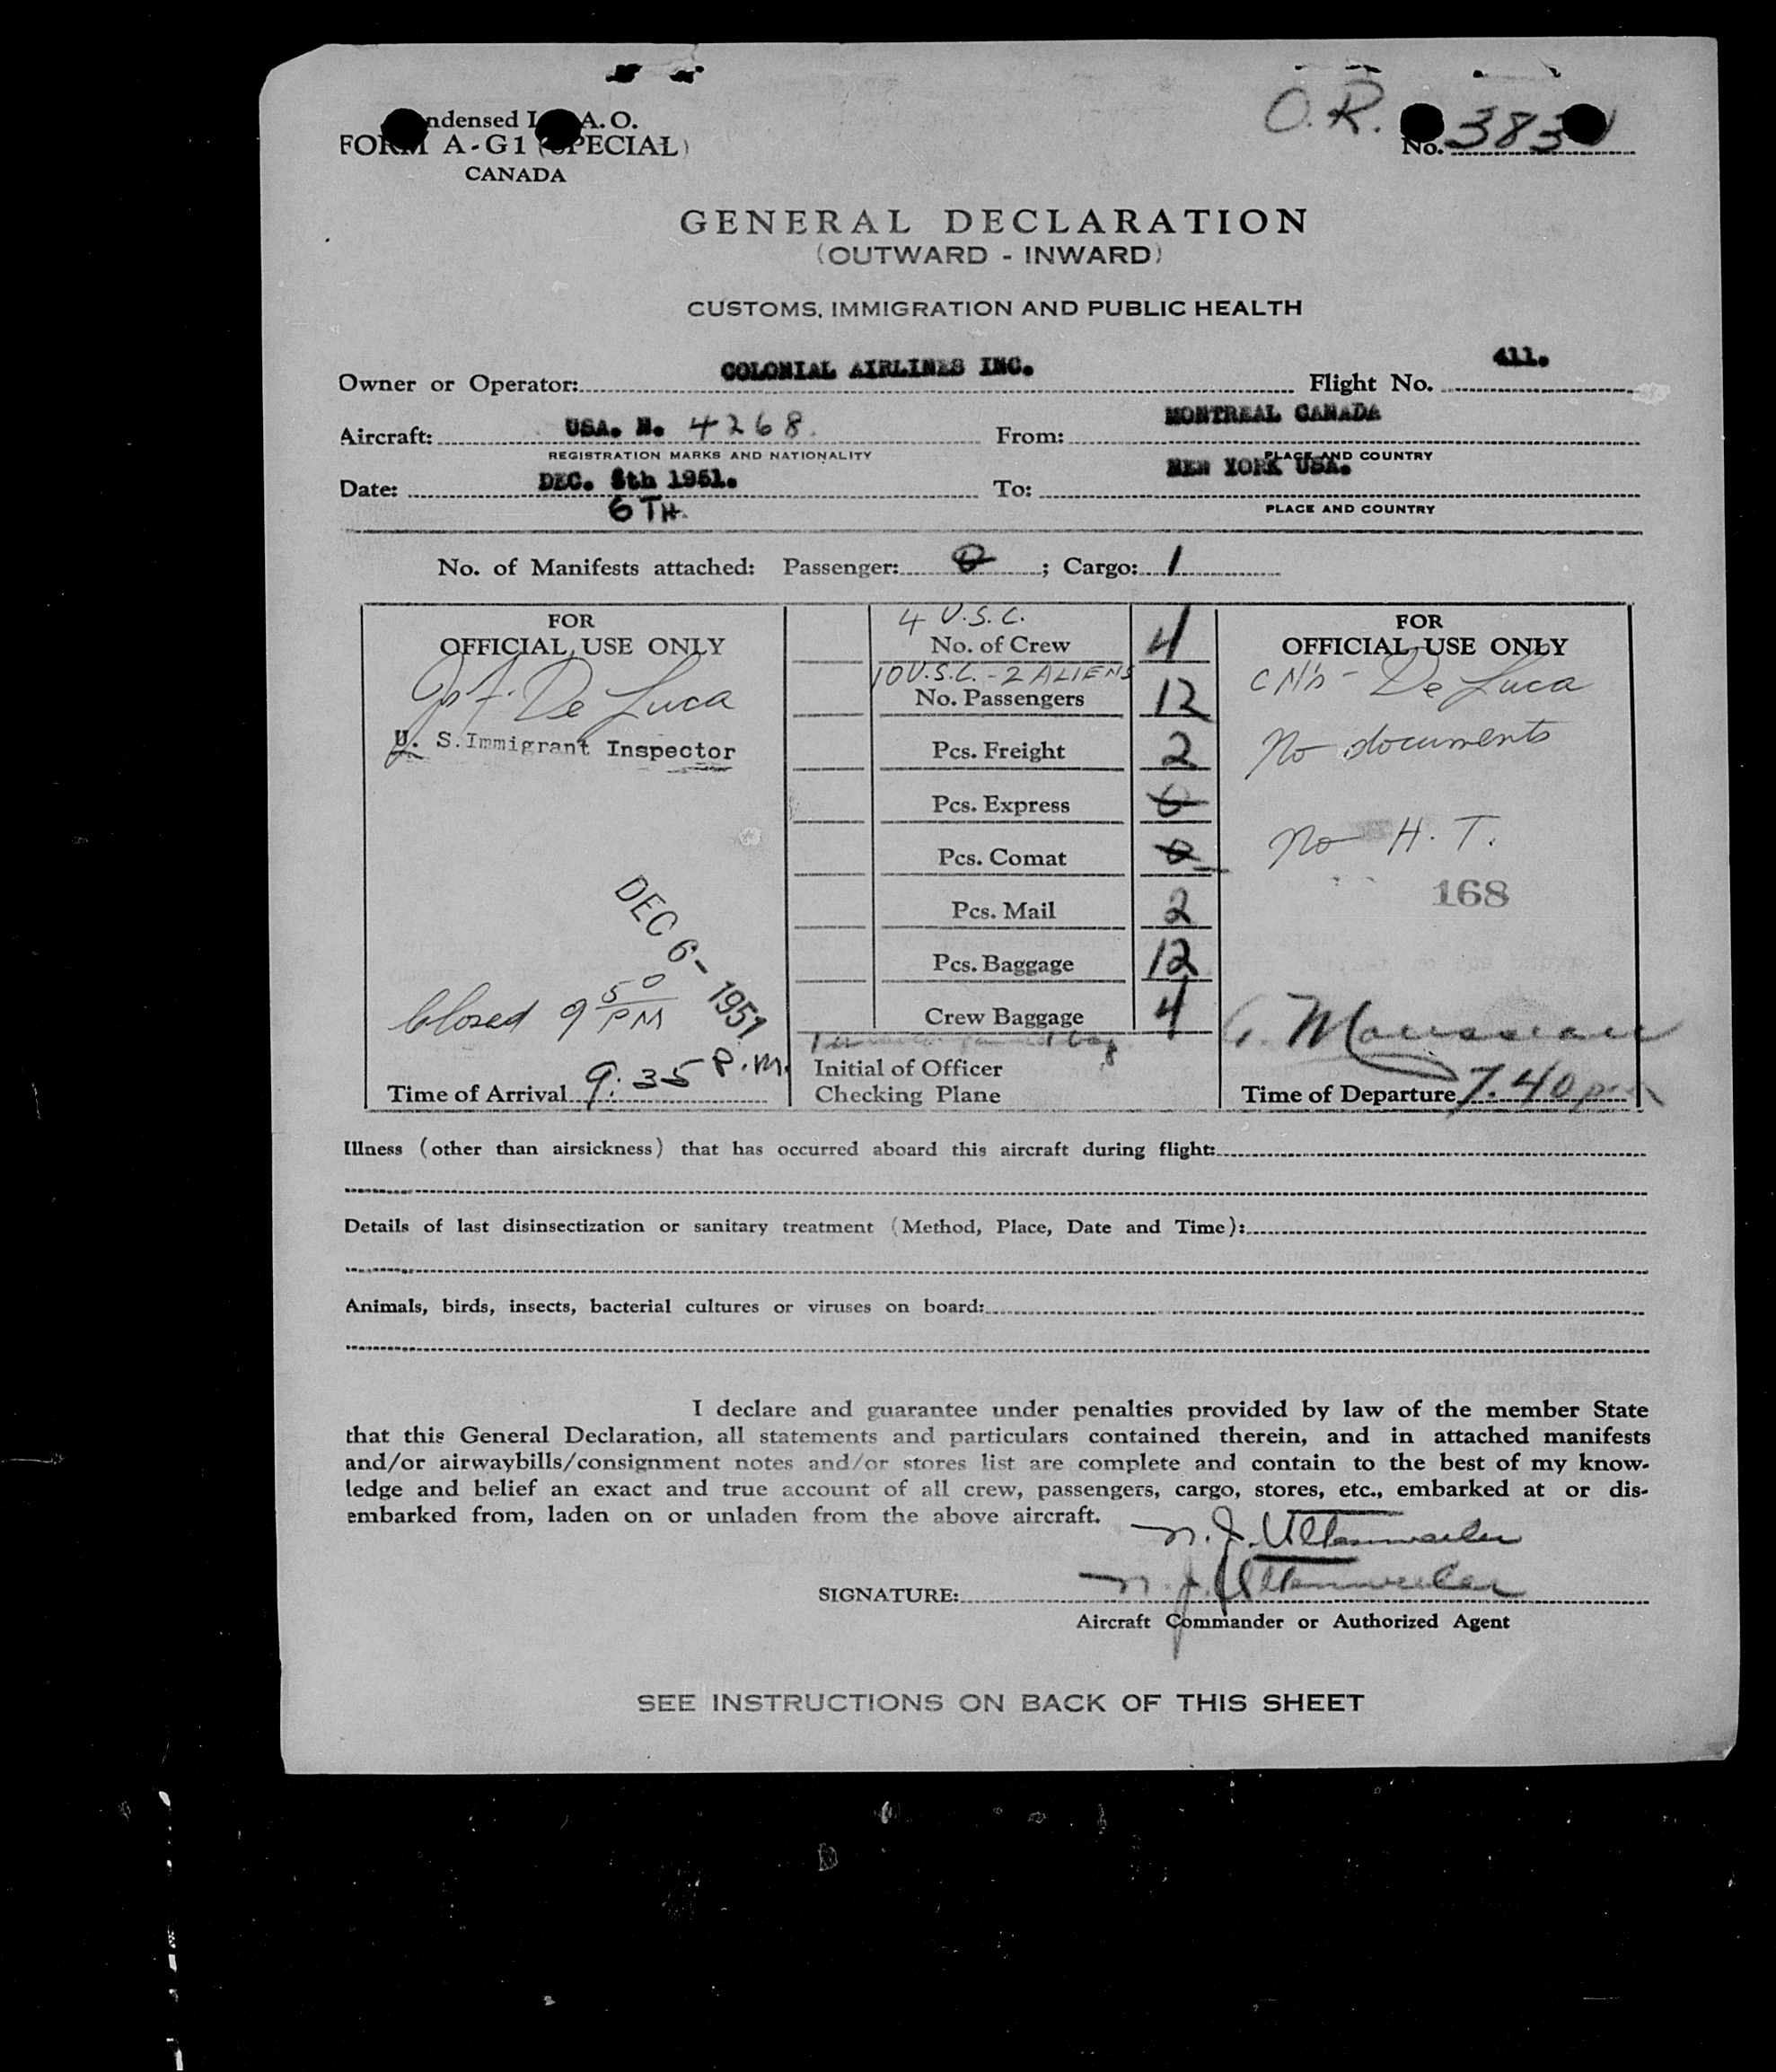 ndensed I A.O.
FORM A-G1 (SPECIAL)
CANADA
O.R.
No. 383
GENERAL DECLARATION
(OUTWARD - INWARD)
CUSTOMS, IMMIGRATION AND PUBLIC HEALTH
Owner or Operator: COLONIAL AIRLINES INC. Flight No. 411.
Aircraft: USA. N. 4268. From: MONTREAL CANADA
REGISTRATION MARKS AND NATIONALITY PLACE AND COUNTRY
Date: DEC. 8th 1951. To: NEW YORK USA.
6TH. PLACE AND COUNTRY
No. of Manifests attached: Passenger: 0; Cargo: 1
FOR
OFFICIAL USE ONLY
De Luca
U. S. Immigrant Inspector
DEC 6 - 1951
Closed 9 50 PM
Time of Arrival 9:35 P.M.
4 U.S.C.
No. of Crew 4
10 U.S.C. - 2 ALIENS
No. Passengers 12
Pcs. Freight 2
Pcs. Express 0
Pcs. Comat 0
Pcs. Mail 2
Pcs. Baggage 12
Crew Baggage 4
Initial of Officer
Checking Plane
FOR
OFFICIAL USE ONLY
De Luca
No documents
No H. T.
168
Time of Departure 7.40 pm
Illness (other than airsickness) that has occurred aboard this aircraft during flight:
Details of last disinsectization or sanitary treatment (Method, Place, Date and Time):
Animals, birds, insects, bacterial cultures or viruses on board:
I declare and guarantee under penalties provided by law of the member State
that this General Declaration, all statements and particulars contained therein, and in attached manifests
and/or airwaybills/consignment notes and/or stores list are complete and contain to the best of my know-
ledge and belief an exact and true account of all crew, passengers, cargo, stores, etc., embarked at or dis-
embarked from, laden on or unladen from the above aircraft.
SIGNATURE:
Aircraft Commander or Authorized Agent
SEE INSTRUCTIONS ON BACK OF THIS SHEET